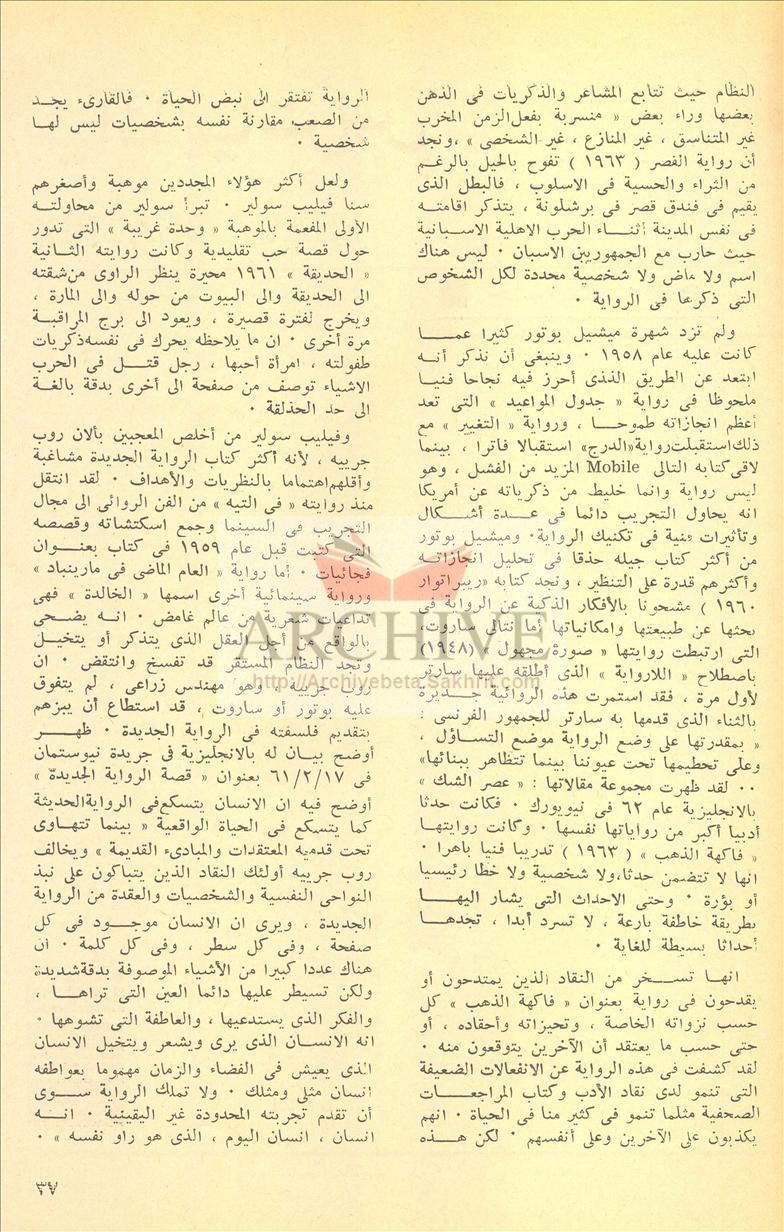 النظام حيث تتابع المشاعر والذكريات فى الذهن
بعضها وراء بعض « منسربة بفعل الزمن المخرب
غير المتناسق ، غير المنازع ، غير الشخصى » ، ونجد
أن رواية القصر ( ١٩٦٣ ) تفوح بالحيل بالرغم
من الثراء والحسية فى الاسلوب ، فالبطل الذى
يقيم فى فندق قصر فى برشلونة ، يتذكر اقامته
فى نفس المدينة أثناء الحرب الاهلية الاسبانية
حيث حارب مع الجمهوريين الاسبان ٠ ليس هناك
اسم ولا ماض ولا شخصية محددة لكل الشخوص
التى ذكرها فى الرواية ٠
ولم تزد شهرة ميشيل بوتور كثيرا عما
كانت عليه عام ١٩٥٨ ٠ وينبغى أن نذكر أنه
ابتعد عن الطريق الذى أحرز فيه نجاحا فنيا
ملحوظا فى رواية « جدول المواعيد » التى تعد
أعظم انجازاته طموحا ، ورواية « التغيير » مع
ذلك استقبلت رواية «الدرج» استقبالا فاترا ، بينما
لاقى كتابه التالى Mobile المزيد من الفشل ، وهو
ليس رواية وانما خليط من ذكرياته عن أمريكا
انه يحاول التجريب دائما فى عدة أشكال
وتأثيرات فنية فى تكنيك الرواية٠ وميشيل بوتور
من أكثر كتاب جيله حذقا فى تحليل انجازاته
وأكثرهم قدرة على التنظير ، ونجد كتابه «ريبراتوار
١٩٦٠ ) مشحونا بالأفكار الذكية عن الرواية فى
بحثها عن طبيعتها وامكانياتها أما نتالى ساروت،
التى ارتبطت روايتها « صورة مجهول » (١٩٤٨)
باصطلاح « اللارواية » الذى أطلقه عليها سارتر
لأول مرة ، فقد استمرت هذه الروائية جديرة
بالثناء الذى قدمها به سارتر للجمهور الفرنسى :
« بمقدرتها على وضع الرواية موضع التساؤل ،
وعلى تحطيمها تحت عيوننا بينما تتظاهر ببنائها»
٠٠ لقد ظهرت مجموعة مقالاتها : « عصر الشك »
بالانجليزية عام ٦٢ فى نيويورك ٠ فكانت حدثا
أدبيا أكبر من رواياتها نفسها ٠ وكانت روايتها
« فاكهة الذهب » ( ١٩٦٣ ) تدريبا فنيا باهرا ٠
انها لا تتضمن حدثا، ولا شخصية ولا خطا رئيسيا
أو بؤرة ٠ وحتى الاحداث التى يشار اليها
بطريقة خاطفة بارعة ، لا تسرد أبدا ، تجدها
أحداثا بسيطة للغاية ٠
انها تسخر من النقاد الذين يمتدحون أو
يقدحون فى رواية بعنوان « فاكهة الذهب » كل
حسب نزواته الخاصة ، وتحيزاته وأحقاده ، أو
حتى حسب ما يعتقد أن الآخرين يتوقعون منه ٠
لقد كشفت فى هذه الرواية عن الانفعالات الضعيفة
التى تنمو لدى نقاد الأدب وكتاب المراجعات
الصحفية مثلما تنمو فى كثير منا فى الحياة ٠ انهم
يكذبون على الآخرين وعلى أنفسهم ٠ لكن هذه
الرواية تفتقر الى نبض الحياة ٠ فالقارىء يجد
من الصعب مقارنة نفسه بشخصيات ليس لها
شخصية ٠
ولعل أكثر هؤلاء المجددين موهبة وأصغرهم
سنا فيليب سولير ٠ تبرأ سولير من محاولته
الأولى المفعمة بالموهبة « وحدة غريبة » التى تدور
حول قصة حب تقليدية وكانت روايته الثانية
« الحديقة » ١٩٦١ محيرة ينظر الراوى من شقته
الى الحديقة والى البيوت من حوله والى المارة ،
ويخرج لفترة قصيرة ، ويعود الى برج المراقبة
مرة أخرى ٠ ان ما يلاحظه يحرك فى نفسه ذكريات
طفولته ، امرأة أحبها ، رجل قتل فى الحرب
الاشياء توصف من صفحة الى أخرى بدقة بالغة
الى حد الحذلقة ٠
وفيليب سولير من أخلص المعجبين بألان روب
جرييه ، لأنه أكثر كتاب الرواية الجديدة مشاغبة
وأقلهم اهتماما بالنظريات والأهداف ٠ لقد انتقل
منذ روايته « فى التيه » من الفن الروائى الى مجال
التجريب فى السينما وجمع اسكتشاته وقصصه
التى كتبت قبل عام ١٩٥٩ فى كتاب بعنوان
فجائيات ٠ أما رواية « العام الماضى فى مارينباد »
ورواية سينمائية أخرى اسمها « الخالدة » فهى
تداعيات شعرية من عالم غامض ٠ انه يضحى
بالواقع من أجل العقل الذى يتذكر أو يتخيل
ونجد النظام المستقر قد تفسخ وانتقض ٠ ان
روب جرييه ، وهو مهندس زراعى ، لم يتفوق
عليه بوتور أو ساروت ، قد استطاع أن يبزهم
بتقديم فلسفته فى الرواية الجديدة ٠ ظهر
أوضح بيان له بالانجليزية فى جريدة نيوستمان
فى ٦١/٢/١٧ بعنوان « قصة الرواية الجديدة »
أوضح فيه ان الانسان يتسكع فى الرواية الحديثة
كما يتسكع فى الحياة الواقعية « بينما تتهاوى
تحت قدميه المعتقدات والمبادىء القديمة » ويخالف
روب جرييه أولئك النقاد الذين يتباكون على نبذ
النواحى النفسية والشخصيات والعقدة من الرواية
الجديدة ، ويرى ان الانسان موجود فى كل
صفحة ، وفى كل سطر ، وفى كل كلمة ٠ ان
هناك عددا كبيرا من الأشياء الموصوفة بدقة شديدة
ولكن تسيطر عليها دائما العين التى تراها ،
والفكر الذى يستدعيها ، والعاطفة التى تشوهها ٠
انه الانسان الذى يرى ويشعر ويتخيل الانسان
الذى يعيش فى الفضاء والزمان مهموما بعواطفه
انسان مثلى ومثلك ٠ ولا تملك الرواية سوى
أن تقدم تجربته المحدودة غير اليقينية ٠ انه
انسان ، انسان اليوم ، الذى هو راو نفسه » ٠
ARCHIVE
http://Archivebeta.Sakhrit.com